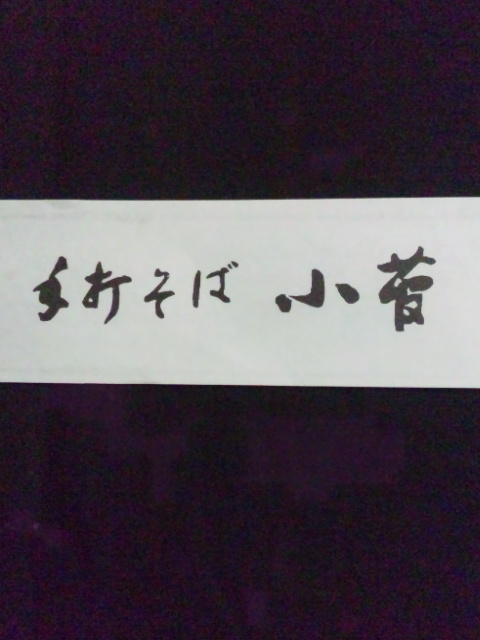 手打そば 小菅